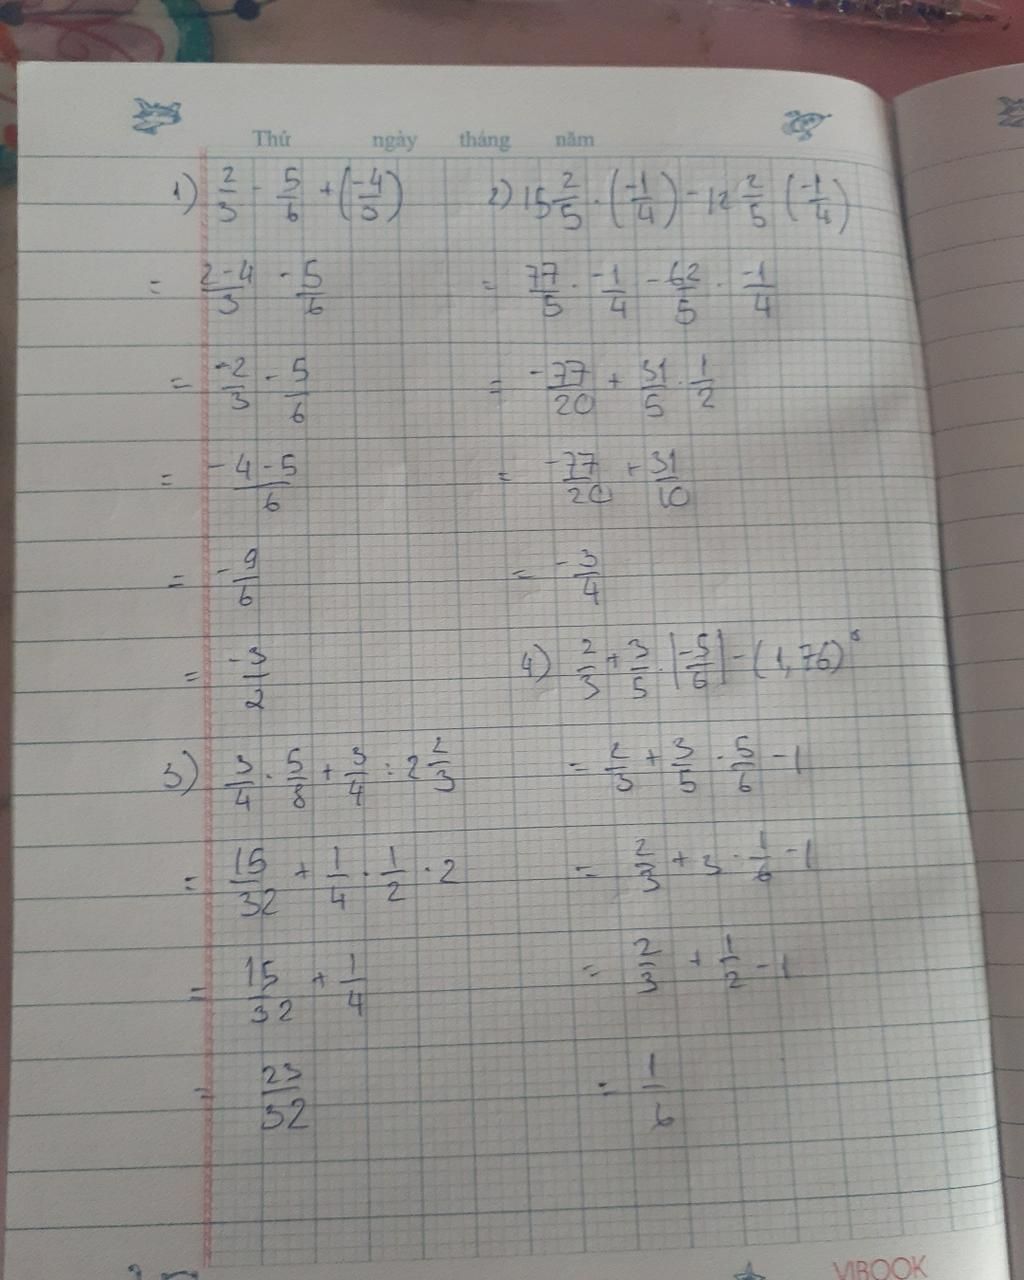 Thứ ngày tháng năm
1) 2/3 - 5/6 + (-4/3)
= 2-4/3 - 5/6
= -2/3 - 5/6
= -4-5/6
= -9/6
= -3/2
2) 15 2/5 . (-1/4) - 12 2/5 (-1/4)
= 77/5 . -1/4 - 62/5 . -1/4
= -77/20 + 31/5 . 1/2
= -77/20 + 31/10
= -3/4
3) 3/4 . 5/8 + 3/4 : 2 2/3
= 15/32 + 1/4 . 1/2 . 2
= 15/32 + 1/4
= 23/32
4) 2/3 + 3/5 . |-5/6| - (1,76)⁰
= 2/3 + 3/5 . 5/6 - 1
= 2/3 + 3 . 1/6 - 1
= 2/3 + 1/2 - 1
= 1/6
VIBOOK